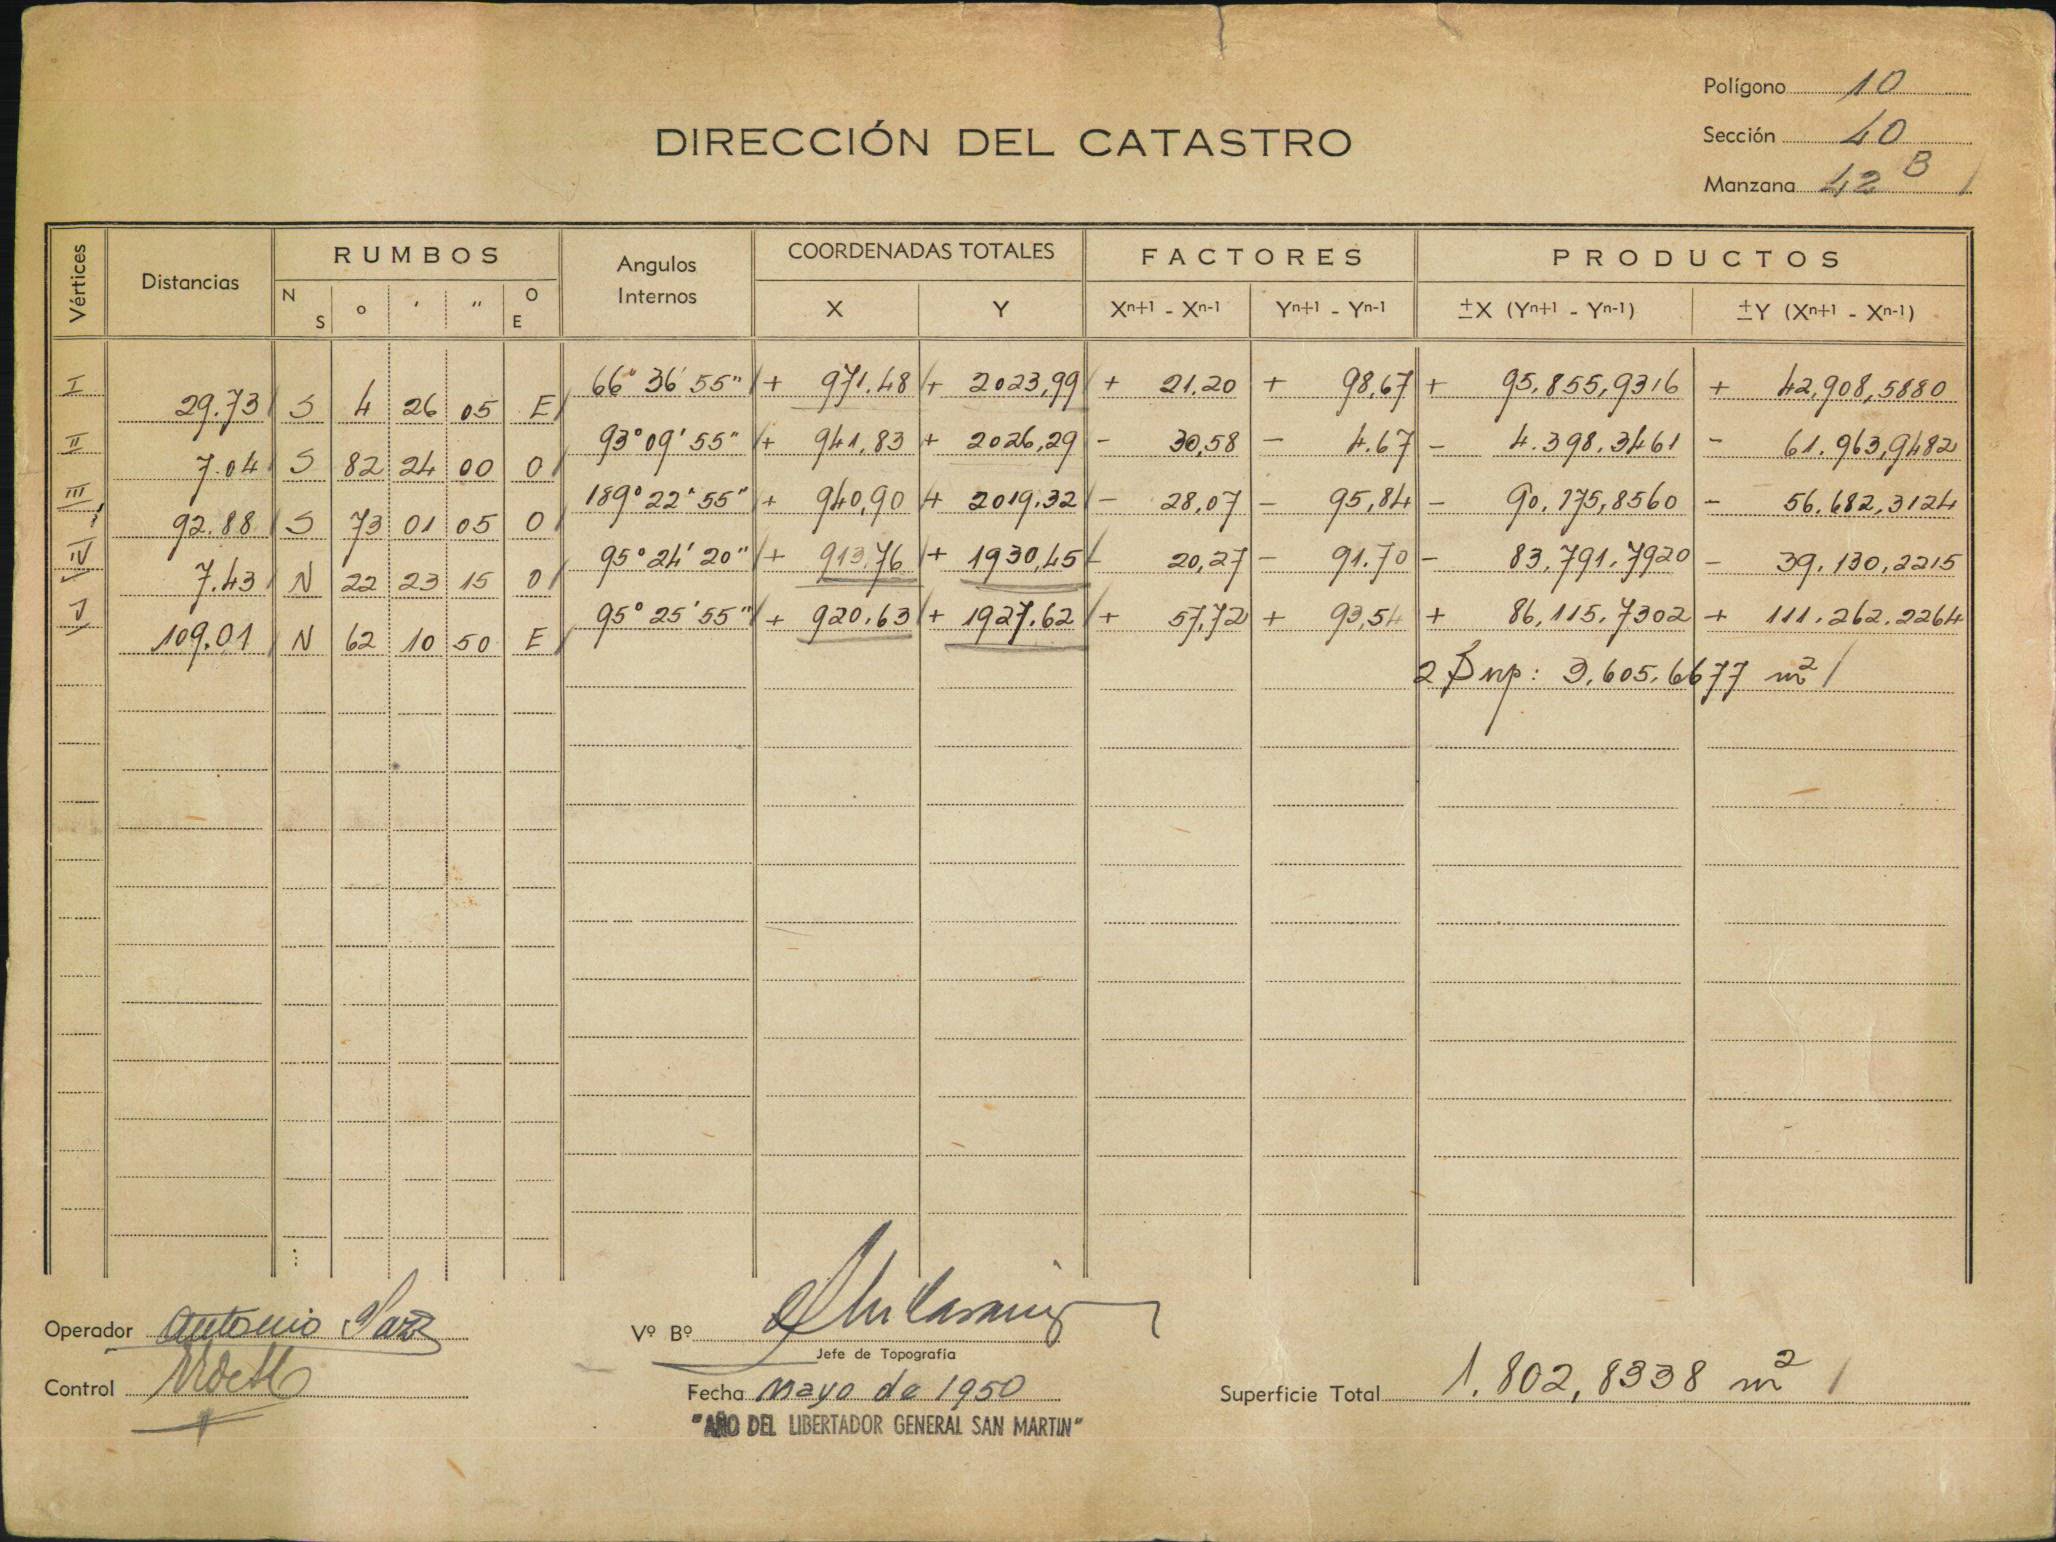 Polígono 10
DIRECCIÓN DEL CATASTRO
Sección 40
Manzana 42 B /
Vértices Distancias RUMBOS N S o ' " O E Angulos Internos COORDENADAS TOTALES X Y FACTORES Xn+1 - Xn-1 Yn+1 - Yn-1 PRODUCTOS ±X (Yn+1 - Yn-1) ±Y (Xn+1 - Xn-1)
I 29.73 S 4 26 05 E 66° 36' 55" + 971.48 + 2023,99 + 21,20 + 98,67 + 95,855,9316 + 42,908,5880
II 7.04 S 82 24 00 O 93° 09' 55" + 941,83 + 2026,29 - 30,58 - 4.67 - 4.398.3461 - 61.963,9482
III 92.88 S 73 01 05 O 189° 22' 55" + 940,90 + 2019.32 - 28,07 - 95,84 - 90,175,8560 - 56.682,3124
IV 7.43 N 22 23 15 O 95° 24' 20" + 913,76 + 1930,45 - 20,27 - 91.70 - 83,791.7920 - 39.130,2215
V 109.01 N 62 10 50 E 95° 25' 55" + 920.63 + 1927.62 + 57,72 + 93,54 + 86,115.7302 + 111.262.2264
2 Sup: 3,605.6677 m2 /
Operador Antonio Paz
Vº Bº
Jefe de Topografía
Control
Fecha Mayo de 1950
Superficie Total 1.802,8338 m2 /
"AÑO DEL LIBERTADOR GENERAL SAN MARTIN"